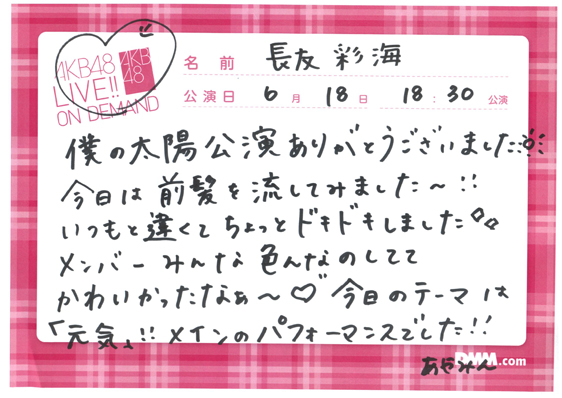 AKB48
LIVE!!
ON DEMAND
AKB
48
名前 長友彩海
公演日 6月 18日 18:30公演
僕の太陽公演ありがとうございました
今日は前髪を流してみました〜!!
いつもと違くてちょっとドキドキしました
メンバーみんな色んなのしてて
かわいかったなぁ〜♡ 今日のテーマは
「元気」!!メインのパフォーマンスでした!!
DMM.com
あやみん